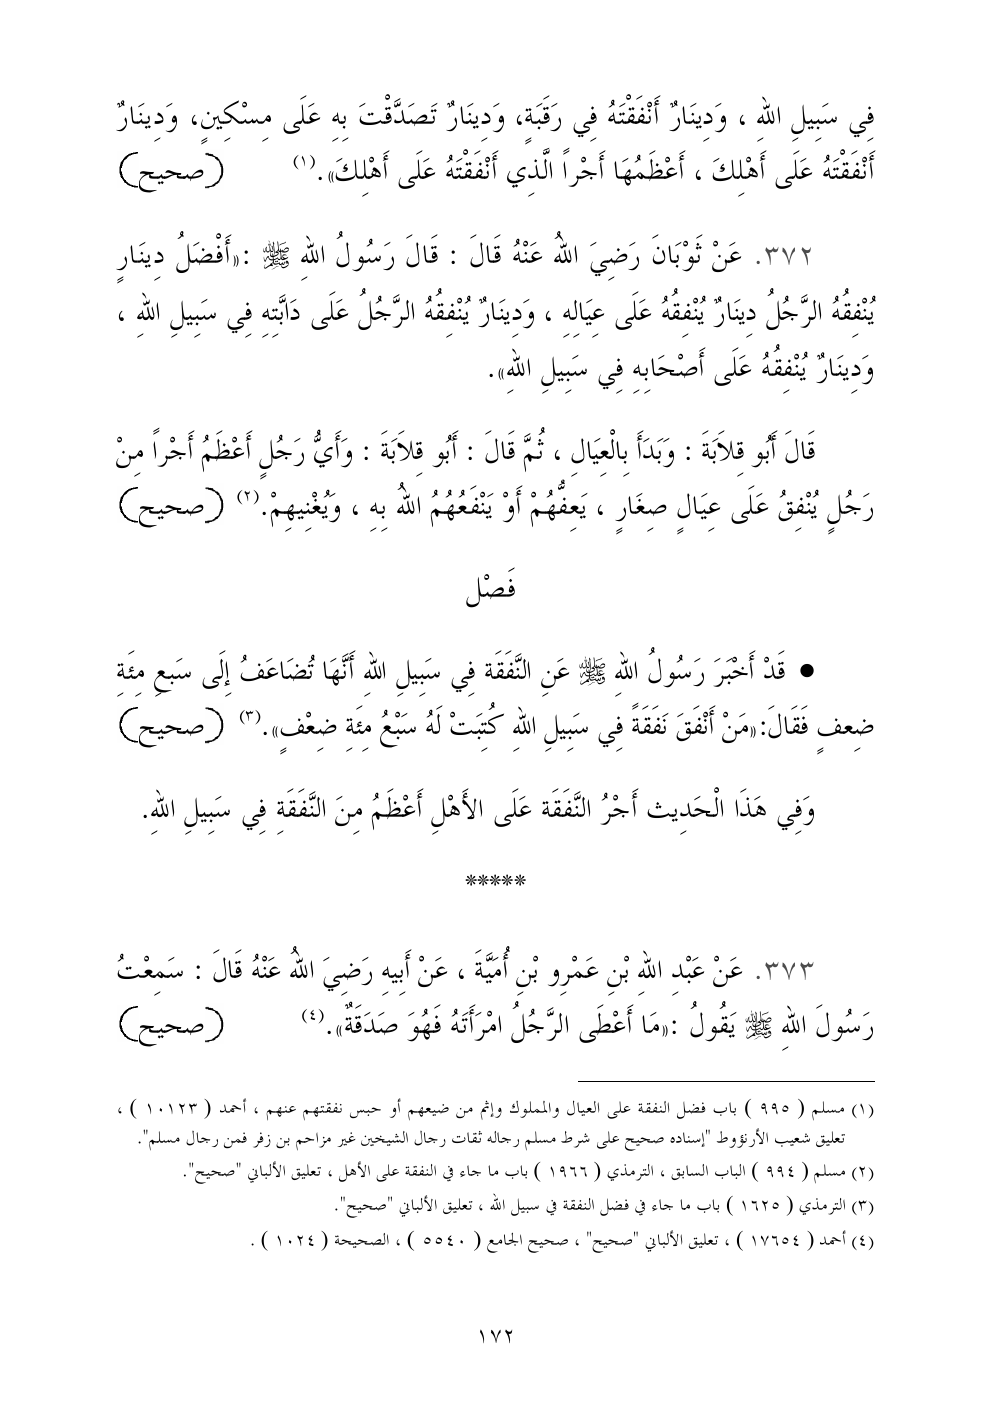 فِي سَبِيلِ اللهِ ، وَدِينَارٌ أَنْفَقْتَهُ فِي رَقَبَةٍ، وَدِينَارٌ تَصَدَّقْتَ بِهِ عَلَى مِسْكِينٍ، وَدِينَارٌ
أَنْفَقْتَهُ عَلَى أَهْلِكَ ، أَعْظَمُهَا أَجْراً الَّذِي أَنْفَقْتَهُ عَلَى أَهْلِكَ». (١) (صحيح)
٣٧٢. عَنْ ثَوْبَانَ رَضِيَ اللهُ عَنْهُ قَالَ : قَالَ رَسُولُ اللهِ ﷺ :«أَفْضَلُ دِينَارٍ
يُنْفِقُهُ الرَّجُلُ دِينَارٌ يُنْفِقُهُ عَلَى عِيَالِهِ ، وَدِينَارٌ يُنْفِقُهُ الرَّجُلُ عَلَى دَابَّتِهِ فِي سَبِيلِ اللهِ ،
وَدِينَارٌ يُنْفِقُهُ عَلَى أَصْحَابِهِ فِي سَبِيلِ اللهِ».
قَالَ أَبُو قِلاَبَةَ : وَبَدَأَ بِالْعِيَالِ ، ثُمَّ قَالَ : أَبُو قِلاَبَةَ : وَأَيُّ رَجُلٍ أَعْظَمُ أَجْراً مِنْ
رَجُلٍ يُنْفِقُ عَلَى عِيَالٍ صِغَارٍ ، يَعِفُّهُمْ أَوْ يَنْفَعُهُمُ اللهُ بِهِ ، وَيُغْنِيهِمْ. (٢) (صحيح)
فَصْل
● قَدْ أَخْبَرَ رَسُولُ اللهِ ﷺ عَنِ النَّفَقَة فِي سَبِيلِ اللهِ أَنَّهَا تُضَاعَفُ إِلَى سَبعِ مِئَةِ
ضِعفٍ فَقَالَ:«مَنْ أَنْفَقَ نَفَقَةً فِي سَبِيلِ اللهِ كُتِبَتْ لَهُ سَبْعُ مِئَةِ ضِعْفٍ». (٣) (صحيح)
وَفِي هَذَا الْحَدِيث أَجْرُ النَّفَقَة عَلَى الأَهْلِ أَعْظَمُ مِنَ النَّفَقَةِ فِي سَبِيلِ اللهِ.
*****
٣٧٣. عَنْ عَبْدِ اللهِ بْنِ عَمْرِو بْنِ أُمَيَّةَ ، عَنْ أَبِيهِ رَضِيَ اللهُ عَنْهُ قَالَ : سَمِعْتُ
رَسُولَ اللهِ ﷺ يَقُولُ :«مَا أَعْطَى الرَّجُلُ امْرَأَتَهُ فَهُوَ صَدَقَةٌ». (٤) (صحيح)
(١) مسلم ( ٩٩٥ ) باب فضل النفقة على العيال والمملوك وإثم من ضيعهم أو حبس نفقتهم عنهم ، أحمد ( ١٠١٢٣ ) ،
تعليق شعيب الأرنؤوط "إسناده صحيح على شرط مسلم رجاله ثقات رجال الشيخين غير مزاحم بن زفر فمن رجال مسلم".
(٢) مسلم ( ٩٩٤ ) الباب السابق ، الترمذي ( ١٩٦٦ ) باب ما جاء في النفقة على الأهل ، تعليق الألباني "صحيح".
(٣) الترمذي ( ١٦٢٥ ) باب ما جاء في فضل النفقة في سبيل الله ، تعليق الألباني "صحيح".
(٤) أحمد ( ١٧٦٥٤ ) ، تعليق الألباني "صحيح" ، صحيح الجامع ( ٥٥٤٠ ) ، الصحيحة ( ١٠٢٤ ) .
١٧٢